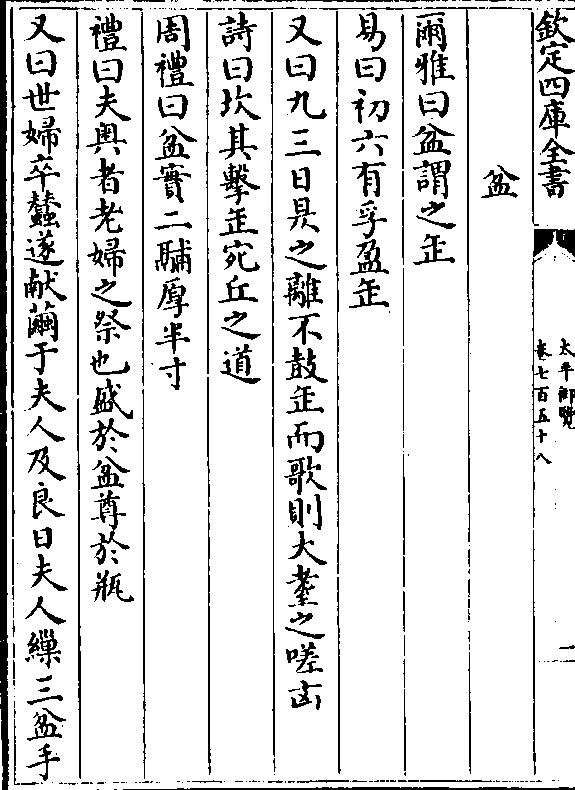 欽定四庫全書
太平御覽
卷七百五十八
一
盆
爾雅曰盆謂之缶
易曰初六有孚盈缶
又曰九三日昃之離不鼓缶而歌則大耋之嗟凶
詩曰坎其擊缶宛丘之道
周禮曰盆實二鬴厚半寸
禮曰夫奥者老婦之祭也盛於盆尊於瓶
又曰世婦卒蠶遂献繭于夫人及良日夫人繅三盆手